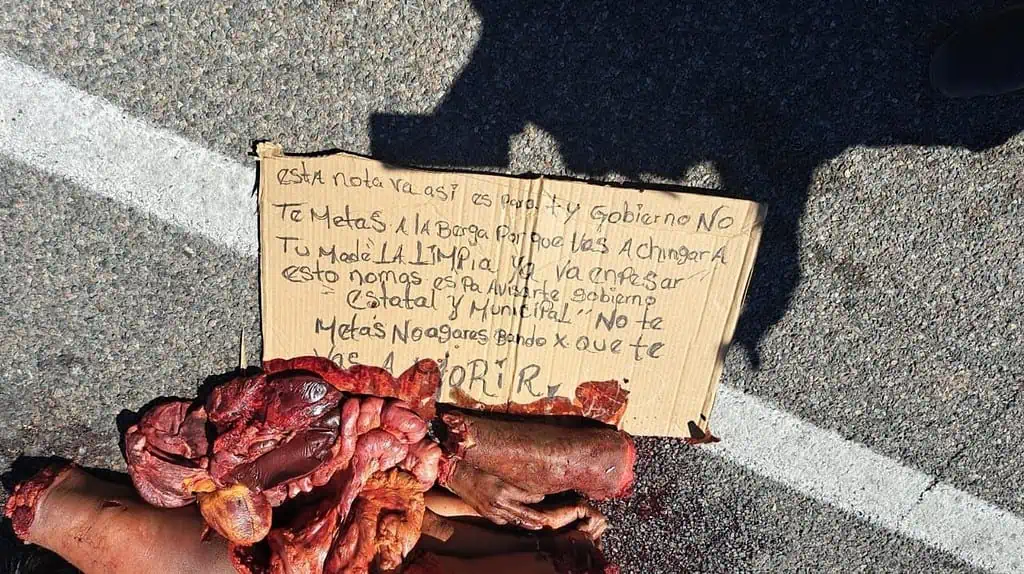 esta nota va así es para ty Gobierno NO
Te Metas A la Berga Porque Vas A chingar A
Tu Made LA LIMPia ya va enpesar
esto nomas es pa Avisarte gobierno
estatal y Municipal" No te
Metas No agares Bando x que te
Vas A MORIR.